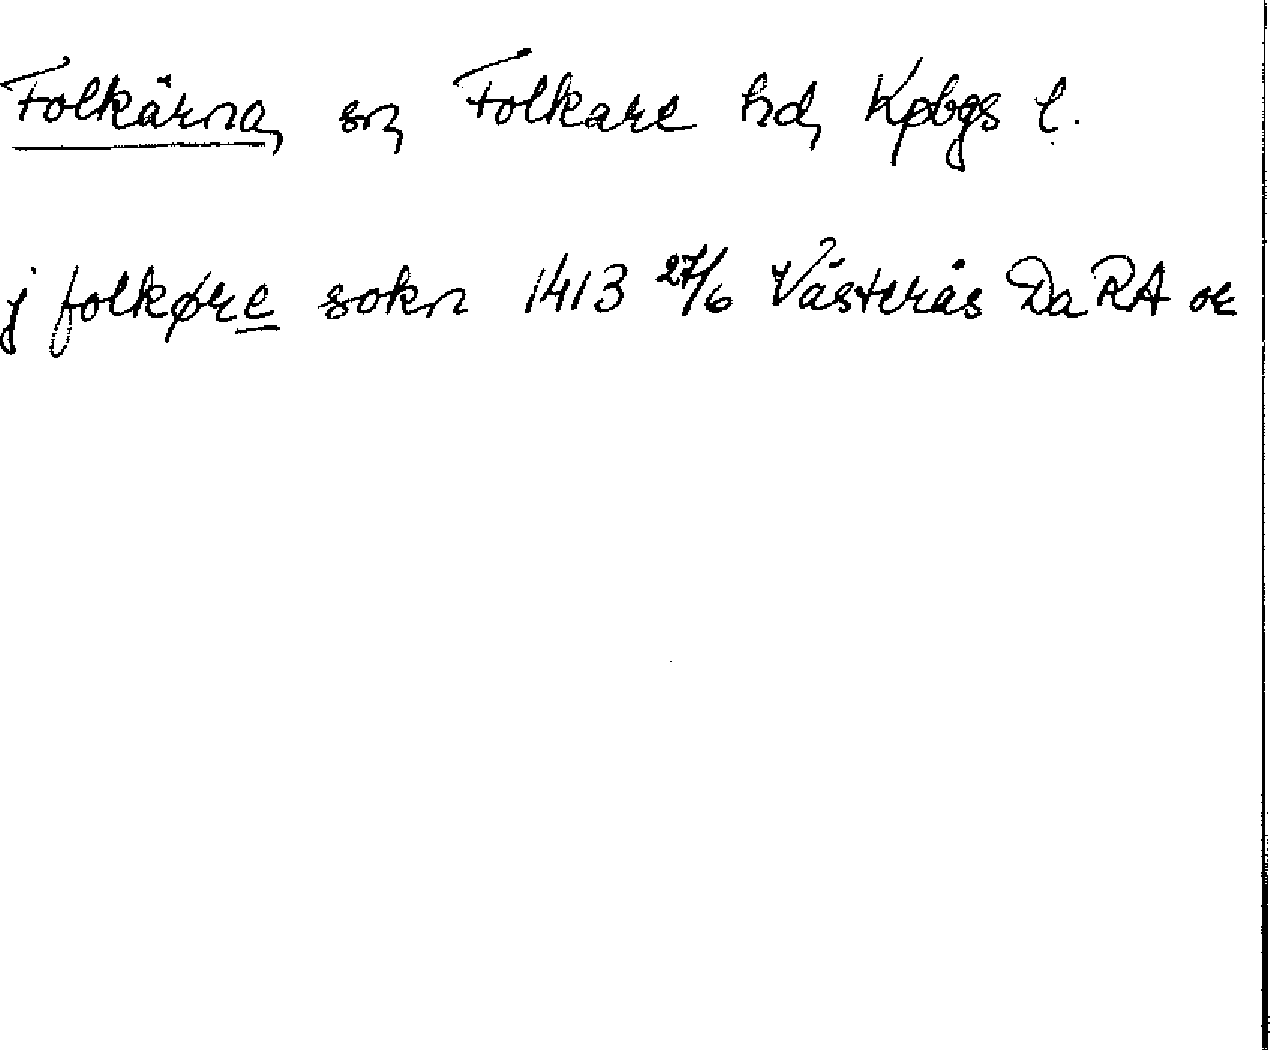 Folkärna, sn, Folkare hd, Kpbgs l.
j folkøre sokn 1413 27/6 Västerås Da RA or